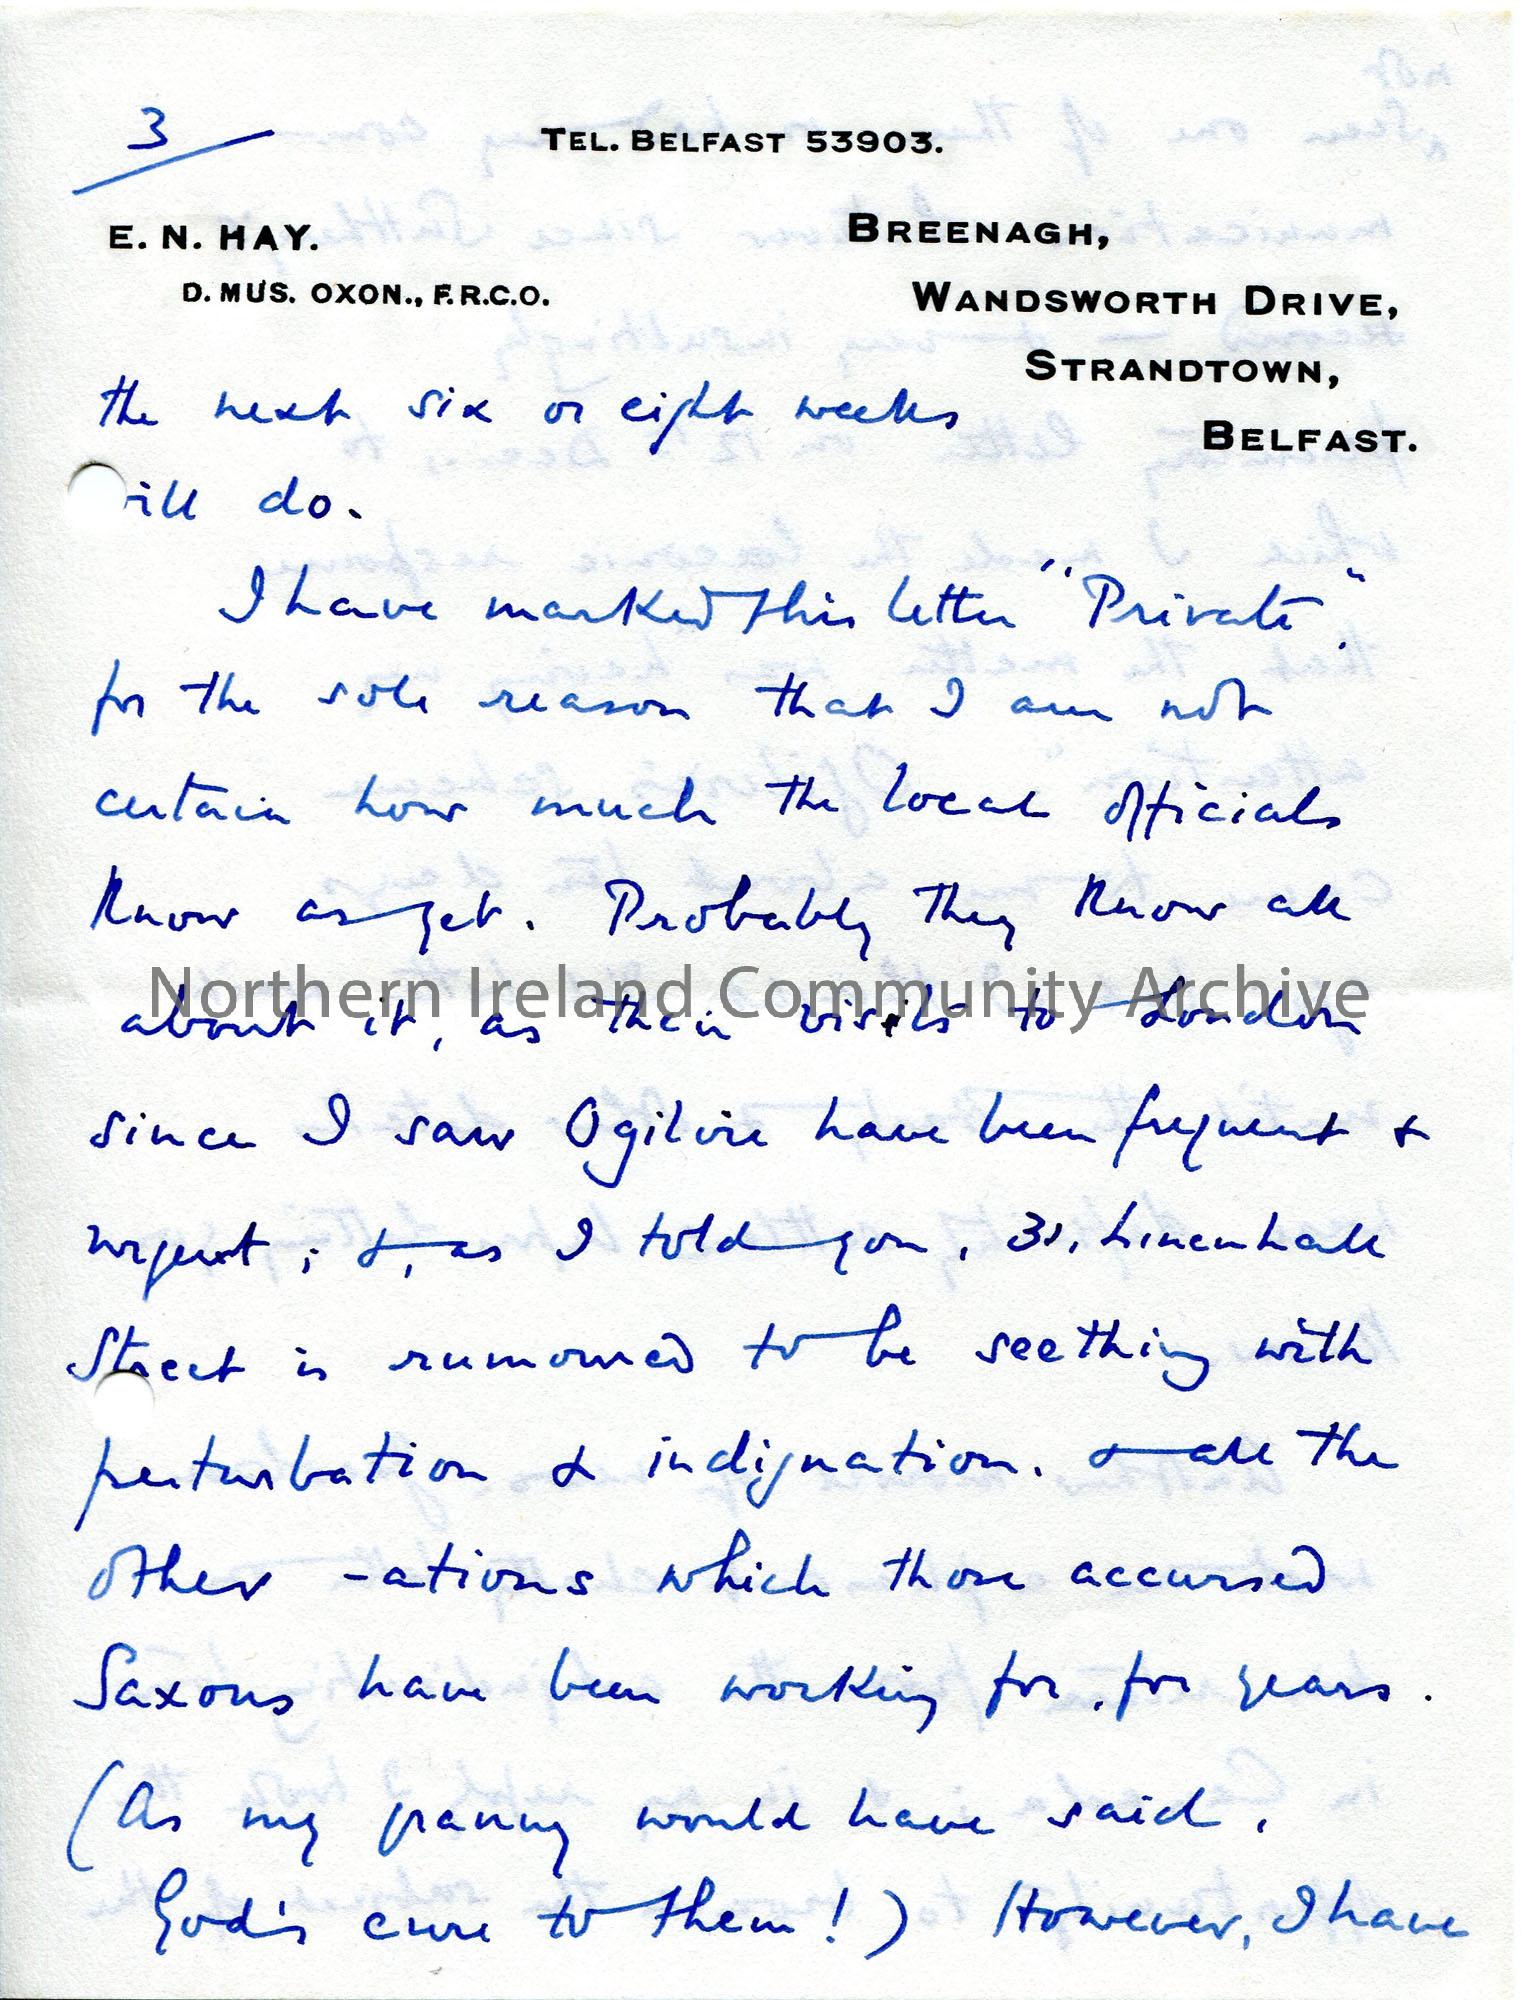 3
TEL. BELFAST 53903.
E. N. HAY.
D. MUS. OXON., F.R.C.O.
BREENAGH,
WANDSWORTH DRIVE,
STRANDTOWN,
BELFAST.
the next six or eight weeks
ill do.
I have marked this letter "Private".
for the sole reason that I am not
certain how much the local officials
know as yet. Probably they know all
Northern Ireland Community Archive
about it, as their visits to London
since I saw Ogilvie have been frequent &
urgent; &, as I told you, 31, Linenhall
Street is rumoured to be seething with
perturbation & indignation, & all the
other -ations which those accursed
Saxons have been working for, for years.
(As my granny would have said,
God's cure to them!) However, I have